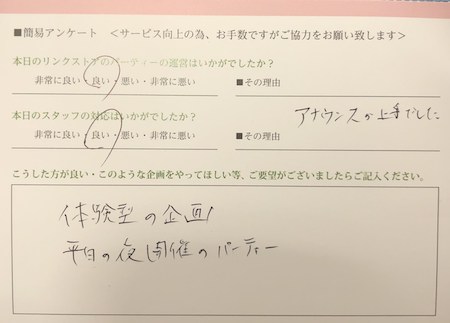 ■簡易アンケート ＜サービス向上の為、お手数ですがご協力をお願い致します＞
本日のリンクストアのパーティーの運営はいかがでしたか？
非常に良い・良い・悪い・非常に悪い ■その理由
本日のスタッフの対応はいかがでしたか？ アナウンスが上手でした
非常に良い・良い・悪い・非常に悪い ■その理由
こうした方が良い・このような企画をやってほしい等、ご要望がございましたらご記入ください。
体験型の企画！
平日の夜開催のパーティー